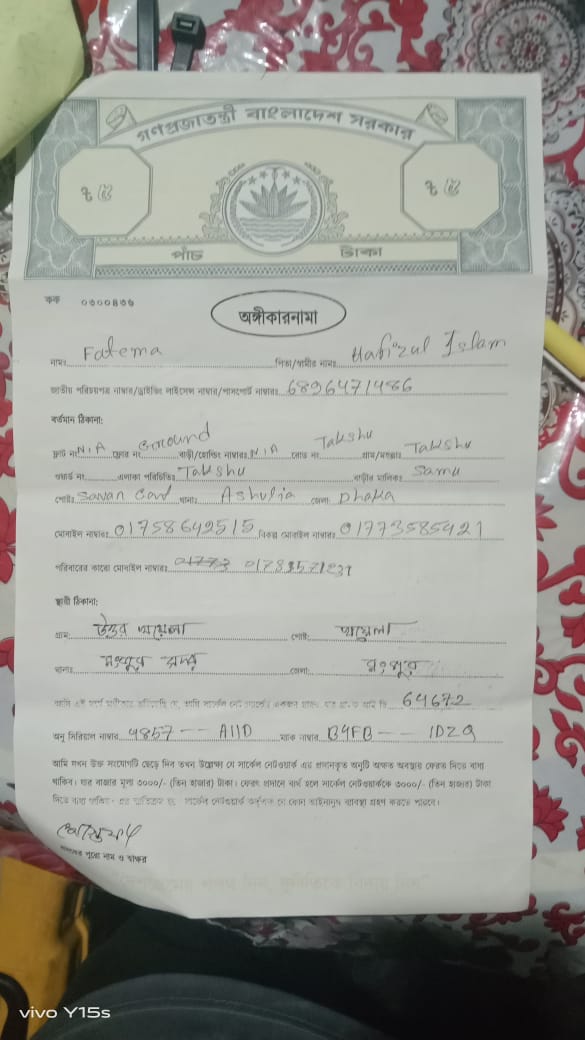 গণপ্রজাতন্ত্রী বাংলাদেশ সরকার
৳ ৫ ৳ ৫
পাঁচ টাকা
কক ০৩০০৪৩৬
অঙ্গীকারনামা
নামঃ Fatema পিতা/স্বামীর নামঃ Hafizul Islam
জাতীয় পরিচয়পত্র নাম্বার/ড্রাইভিং লাইসেন্স নাম্বার/পাসপোর্ট নাম্বারঃ 6896471486
বর্তমান ঠিকানা:
ফ্ল্যাট নং N/A ফ্লোর নং Ground বাড়ী/হোল্ডিং নাম্বারঃ N/A রোড নং Takshu গ্রাম/মহল্লাঃ Takshu
ওয়ার্ড নং এলাকা পরিচিতিঃ Takshu বাড়ীর মালিকঃ
পোষ্টঃ Savan Card থানাঃ Ashulia জেলা Dhaka
মোবাইল নাম্বারঃ 01758642515 বিকল্প মোবাইল নাম্বারঃ 01773585421
পরিবারের কারো মোবাইল নাম্বারঃ
স্থায়ী ঠিকানা:
গ্রামঃ উত্তর পোষ্টঃ
থানাঃ রংপুর সদর জেলাঃ রংপুর
64672
অনু সিরিয়াল নাম্বারঃ 4857 -- A11D ম্যাক নাম্বারঃ B4FB -- 1D29
আমি যখন উক্ত সংযোগটি ছেড়ে দিব তখন উল্লেখ্য যে সার্কেল নেটওয়ার্ক এর প্রদানকৃত অনুটি অক্ষত অবস্থায় ফেরত দিতে বাধ্য
থাকিব। যার বাজার মূল্য ৩০০০/- (তিন হাজার) টাকা। ফেরৎ প্রদানে ব্যর্থ হলে সার্কেল নেটওয়ার্ককে ৩০০০/- (তিন হাজার) টাকা
দিতে বাধ্য থাকিব। এর ব্যতিক্রম হলে সার্কেল নেটওয়ার্ক কর্তৃপক্ষ যে কোন আইনানুগ ব্যবস্থা গ্রহণ করতে পারবে।
পুরো নাম ও স্বাক্ষর
vivo Y15s